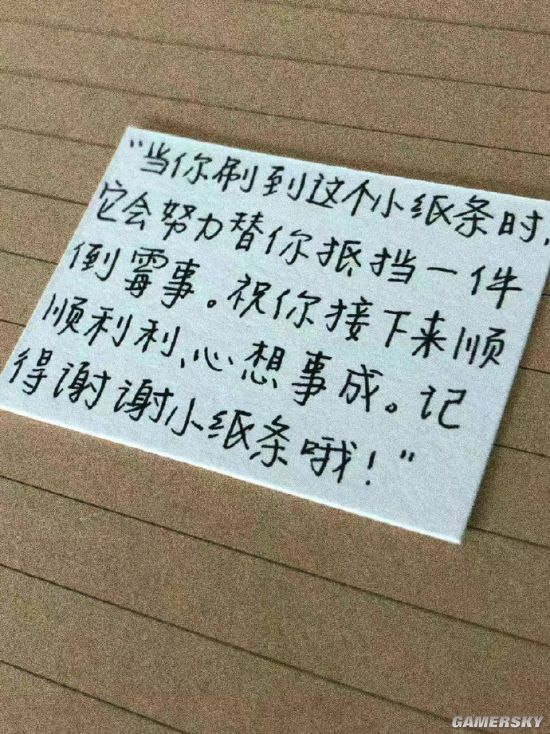 "当你刷到这个小纸条时,
它会努力替你抵挡一件
倒霉事。祝你接下来顺
顺利利,心想事成。记
得谢谢小纸条哦!"
GAMERSKY